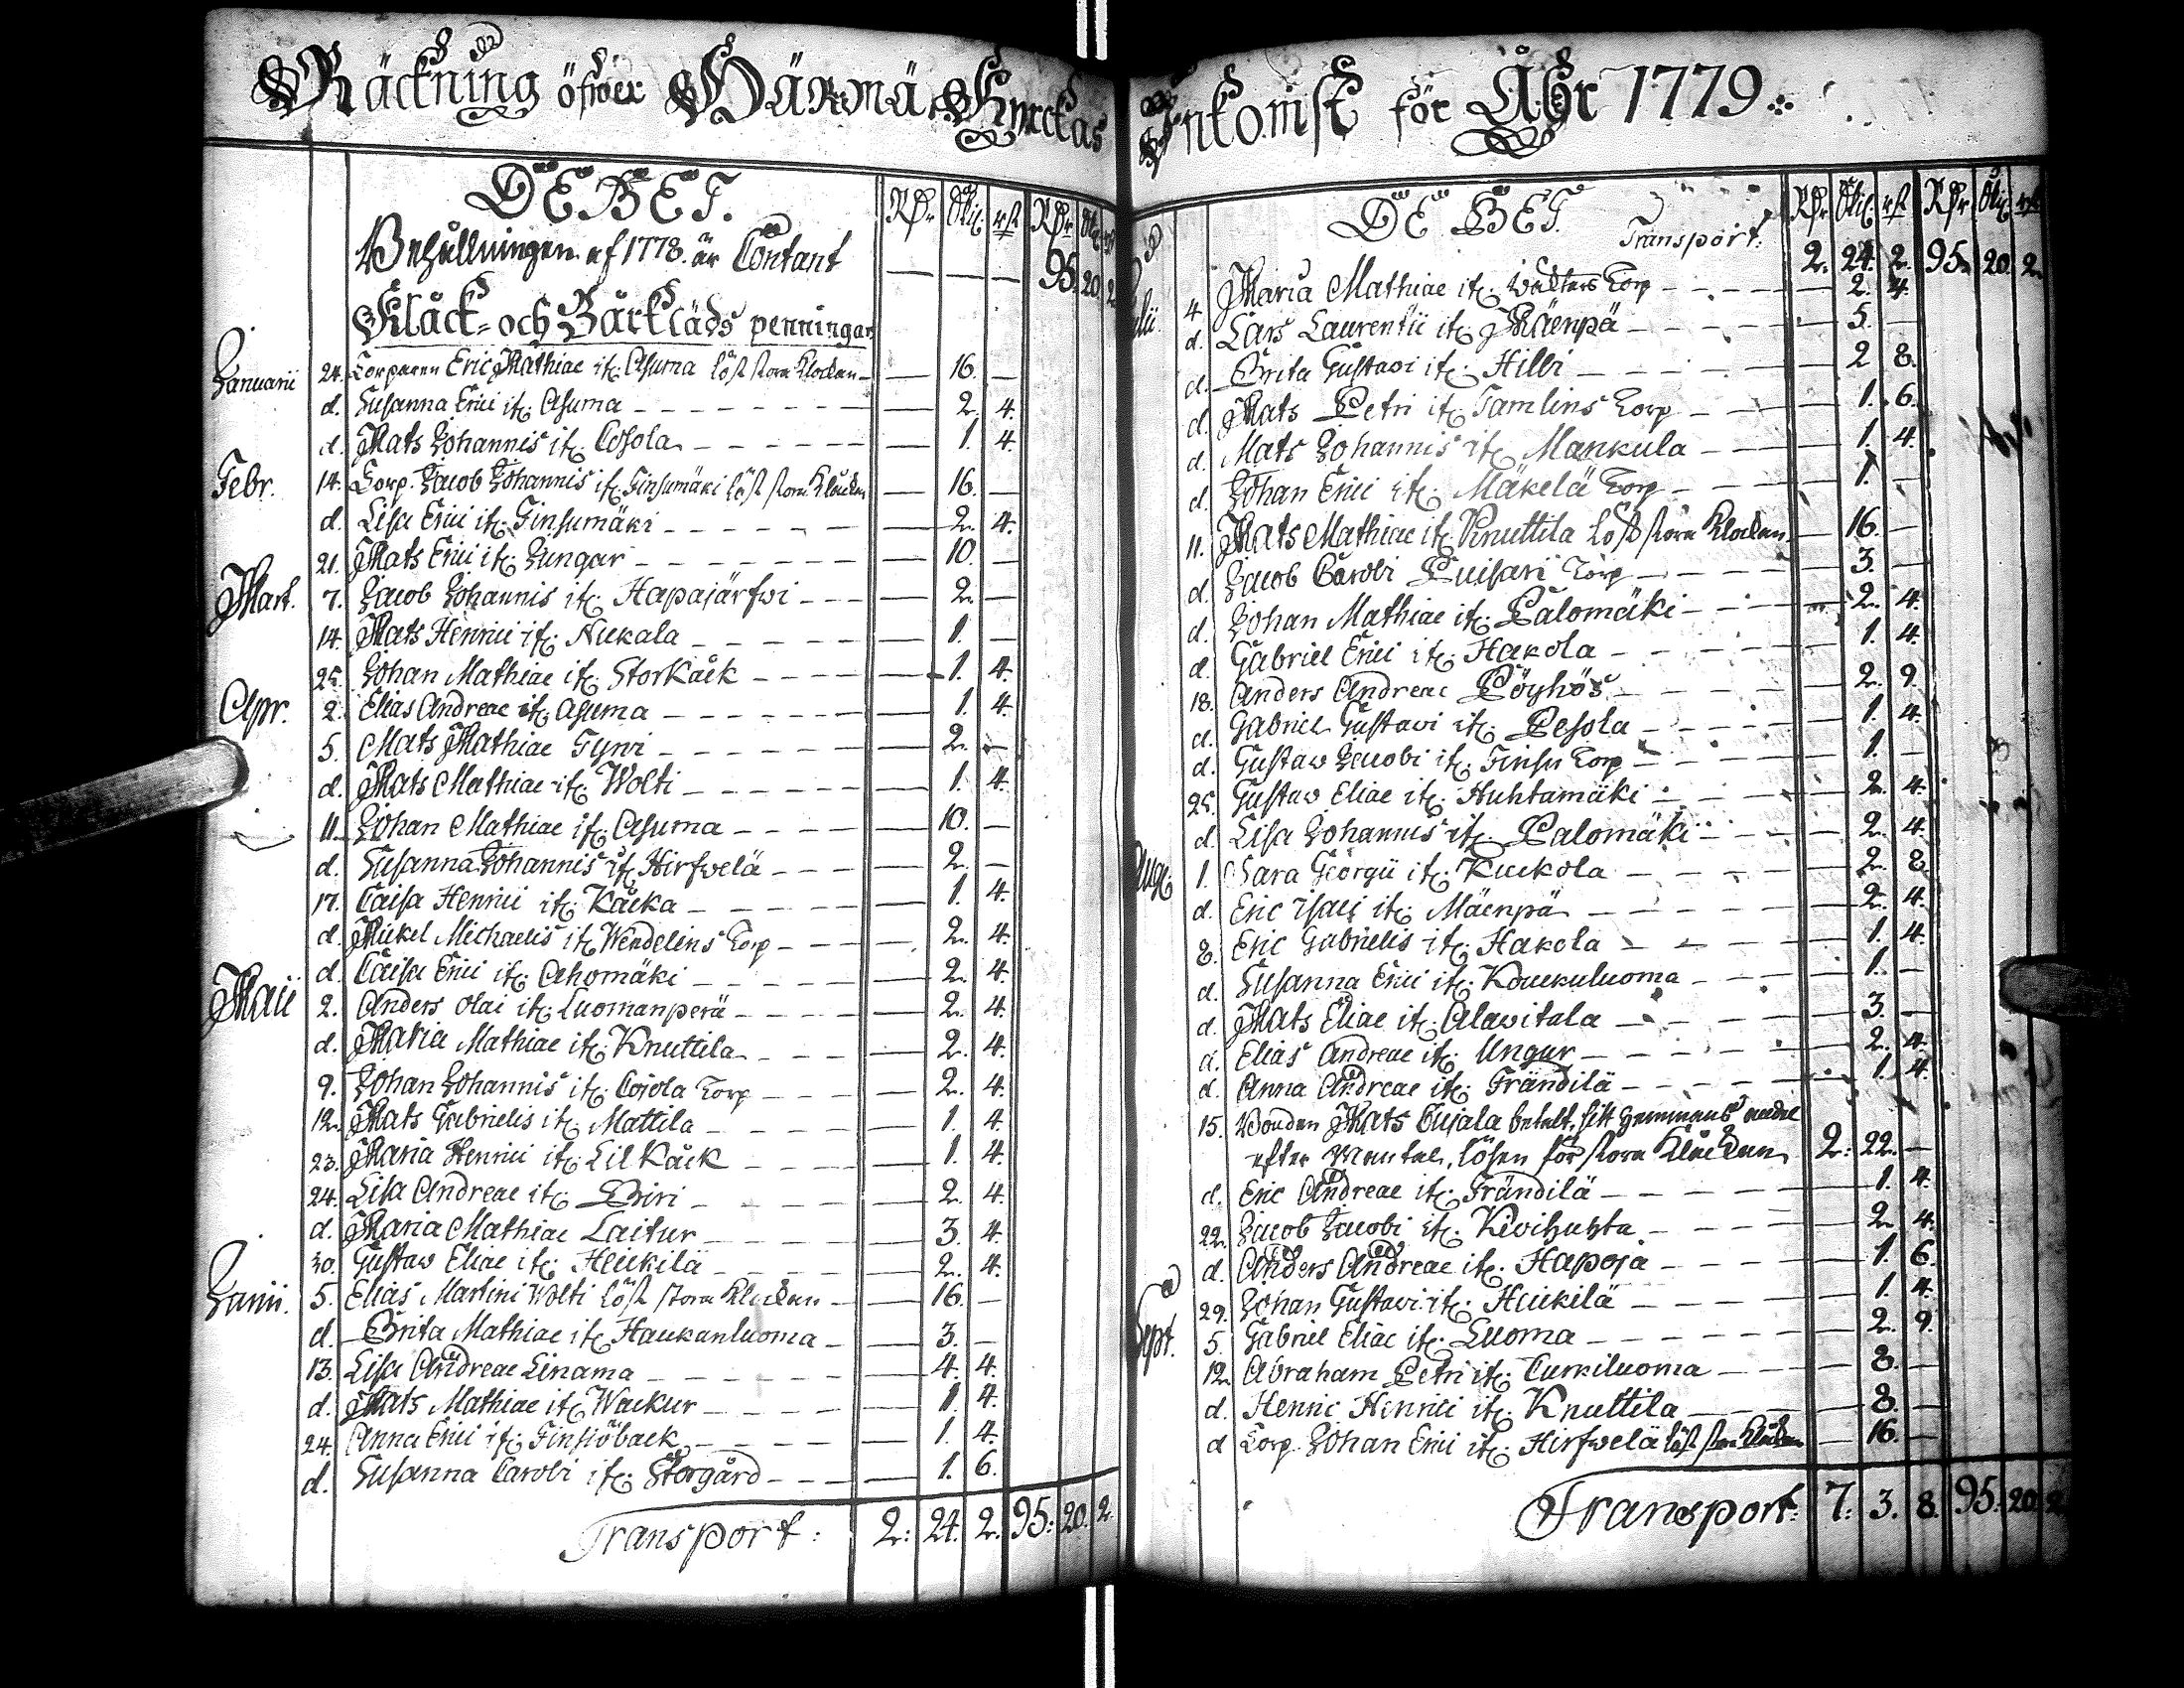 Räckning öfwer Härmä Kyrckas
DEBET.
RDr Skil. rst RDr Skil. rst
Behållningen af 1778. är Contant — — — 95. 20. 2
Klåck- och Bårklåds penningar
Januarii 24. Torparen Eric Mathiae it: Asuma löst stora Klockan — 16. —
d. Susanna Erici it: Asuma — 2. 4.
d. Mats Johannis it: Cojola — 1. 4.
Febr. 14. Torp. Jacob Johannis it: Finsumäki löst stora Klockan — 16. —
d. Lisa Erici it: Finsumäki — 2. 4.
21. Mats Erici it: Jungar — 10. —
Mart. 7. Jacob Johannis it: Hapajärfwi — 2. —
14. Mats Henrici it: Nukala — 1. —
25. Johan Mathiae it: Storkåck — 1. 4.
Apr. 2. Elias Andreae it: Asuma — 1. 4.
5. Mats Mathiae Fynri — 2. —
d. Mats Mathiae it: Wolti — 1. 4.
11. Johan Mathiae it: Asuma — 10. —
d. Susanna Johannis it: Hirfwelä — 2. —
17. Caisa Henrici it: Kåcka — 1. 4.
d. Mickel Michaelis it: Wendelins Torp — 2. 4.
d. Caisa Erici it: Ahomäki — 2. 4.
Maii 2. Anders Olai it: Luomanperä — 2. 4.
d. Maria Mathiae it: Knuttila — 2. 4.
9. Johan Johannis it: Cojola Torp — 2. 4.
12. Mats Gabrielis it: Mattila — 1. 4.
23. Maria Henrici it: Lilkåck — 1. 4.
24. Lisa Andreae it: Biri — 2. 4.
d. Maria Mathiae Laitur — 3. 4.
30. Gustaw Eliae it: Heickilä — 2. 4.
Junii. 5. Elias Martini Wolti löst stora Klockan — 16. —
d. Brita Mathiae it: Haukanluoma — 3. —
13. Lisa Andreae Linama — 4. 4.
d. Mats Mathiae it: Wackur — 1. 4.
24. Anna Erici it: Finsiöback — 1. 4.
d. Susanna Carobi it: Storgård — 1. 6.
Transport: 2: 24. 2. 95: 20. 2.
Inkomst för Åhr 1779.
DEBET.
RDr Skil. rst RDr Skil. rst
Transport: 2. 24. 2. 95. 20. 2.
Julii. 4. Maria Mathiae it: Walters Torp — 2. 4.
d. Lars Laurentii it: Mäenpä — 5. —
d. Brita Gustavi it: Hilli — 2 8.
d. Mats Petri it: Tamlins Torp — 1. 6.
d. Mats Johannis it: Mankula — 1. 4.
d. Johan Erici it: Mäkelä Torp — 1. —
11. Mats Mathiae it: Knuttila löst stora Klockan — 16. —
d. Jacob Carobi Luisari Torp — 3. —
d. Johan Mathiae it: Palomäki — 2. 4.
d. Gabriel Erici it: Hakola — 1. 4.
18. Anders Andreae Pöyhös — 2. 9.
d. Gabriel Gustavi it: Pesola — 1. 4.
d. Gustaw Jacobi it: Finsu Torp — 1. —
25. Gustaw Eliae it: Huhtamäki — 2. 4.
d. Lisa Johannis it: Palomäki — 2. 4.
Aug: 1. Sara Georgii it: Kuckola — 2. 8.
d. Eric Isaci it: Mäenpä — 2. 4.
8. Eric Gabrielis it: Hakola — 1. 4.
d. Susanna Erici it: Kouckuluoma — 1. —
d. Mats Eliae it: Alavitala — 3. —
d. Elias Andreae it: Ungur — 2. 4.
d. Anna Andreae it: Frändilä — 1. 4.
15. Bonden Mats Cujala betalt sitt hemmans andel
efter Mantal, lösen för stora Klåckan 2: 22. —
d. Eric Andreae it: Frändilä — 1. 4.
22. Jacob Jacobi it: Kivihuhta — 2. 4.
d. Anders Andreae it: Hapoja — 1. 6.
29. Johan Gustavi it: Heickilä — 1. 4.
Sept. 5. Gabriel Eliae it: Luoma — 2. 9.
12. Abraham Petri it: Curkiluoma — 8. —
d. Henric Henrici it: Knuttila — 8. —
d Torp. Johan Erici it: Hirfwelä löst stora Klåckan — 16. —
Transport: 7: 3. 8. 95. 20. 2